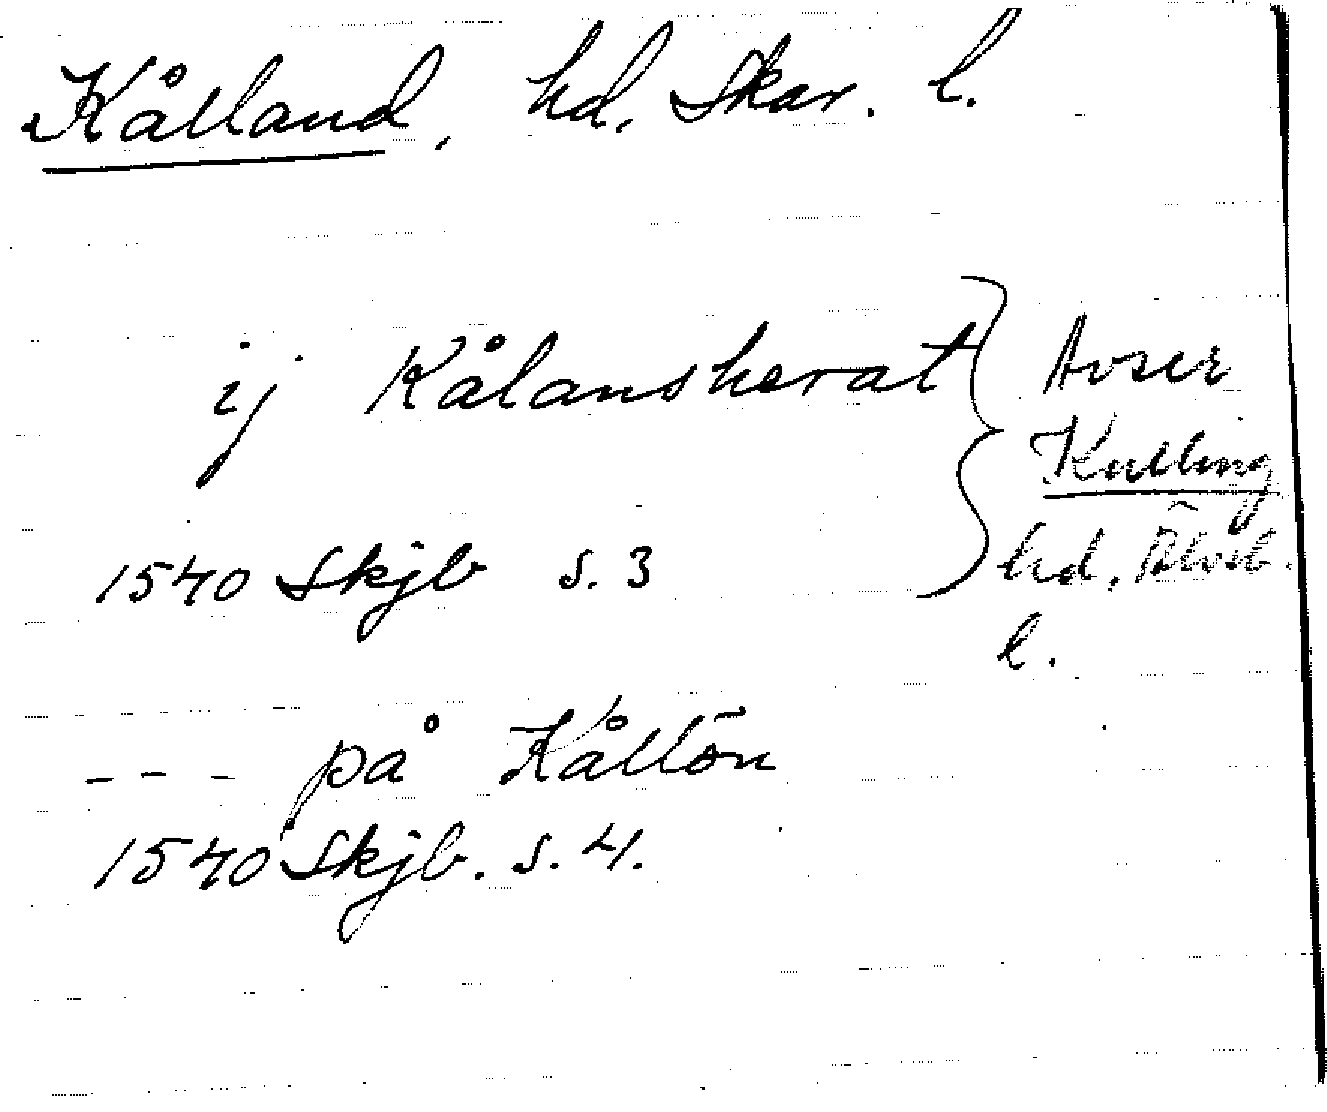 Kålland, hd. Skar. l.
ij Kålansherat
1540 Skjb s. 3
Avser
Kulling
hd. Älvsb.
l.
--- på Kållōn
1540 Skjb. s. 4.